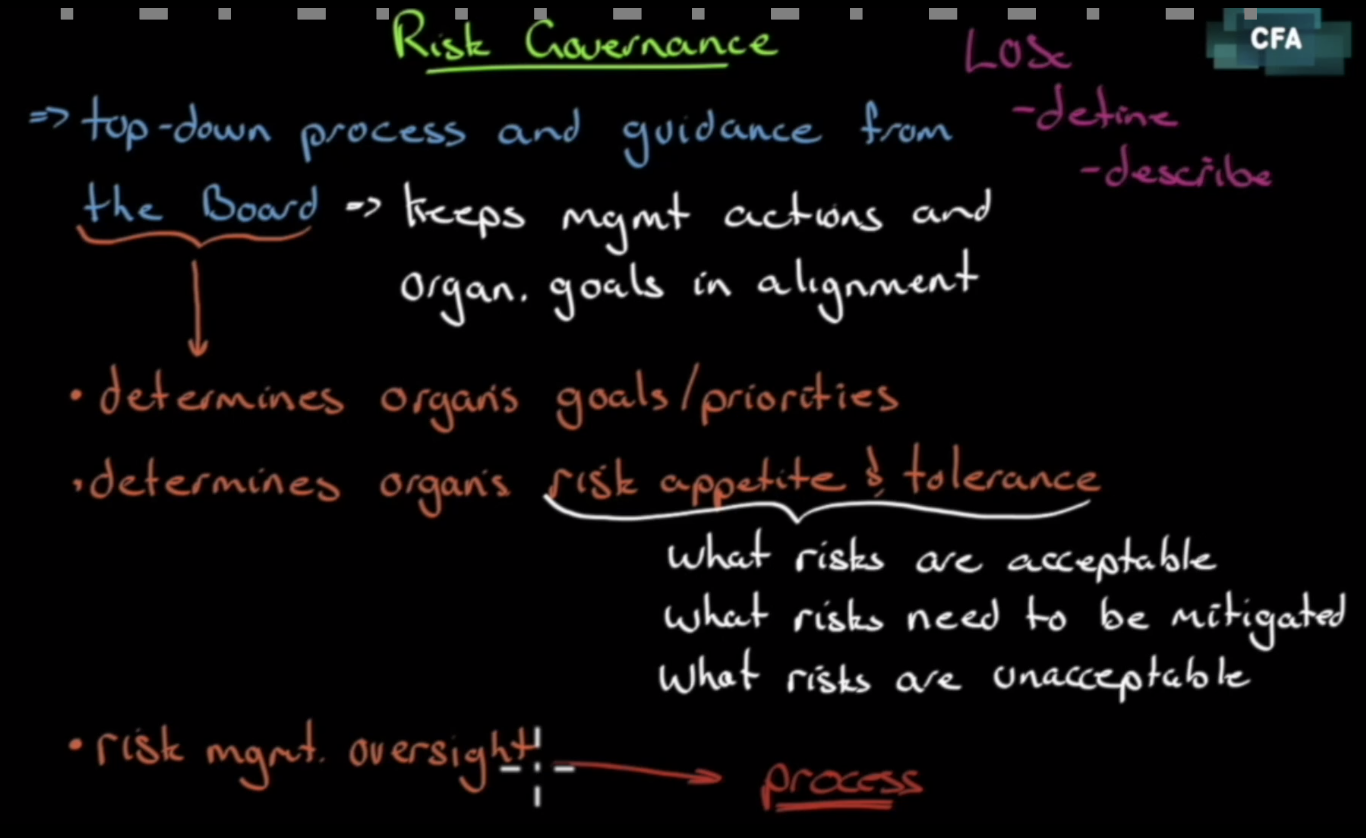 Risk Governance
LOSc
CFA
- define
- describe
=> top-down process and guidance from
the Board => keeps mgmt actions and
organ. goals in alignment
• determines organ's goals/priorities
• determines organ's risk appetite & tolerance
what risks are acceptable
what risks need to be mitigated
what risks are unacceptable
• risk mgmt. oversight → process